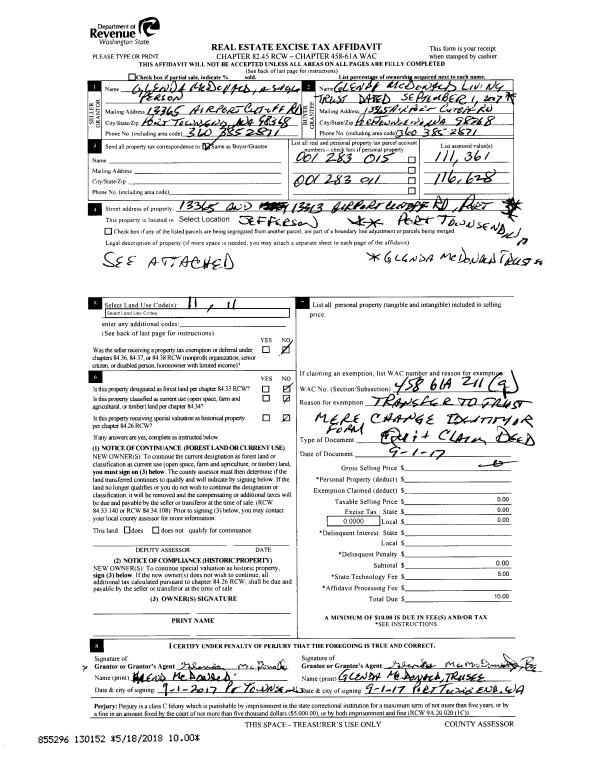 Department of
Revenue
Washington State
REAL ESTATE EXCISE TAX AFFIDAVIT
This form is your receipt
PLEASE TYPE OR PRINT
CHAPTER 82.45 RCW – CHAPTER 458-61A WAC
when stamped by cashier.
THIS AFFIDAVIT WILL NOT BE ACCEPTED UNLESS ALL AREAS ON ALL PAGES ARE FULLY COMPLETED
(See back of last page for instructions)
Check box if partial sale, indicate % sold.
List percentage of ownership acquired next to each name.
1
SELLER GRANTOR
Name GLENDA McDONALD, A SINGLE
PERSON
Mailing Address 13365 AIRPORT CUTOFF RD
City/State/Zip PORT TOWNSEND, WA 98368
Phone No. (including area code) 360 385 2871
2
BUYER GRANTEE
Name GLENDA McDONALD LIVING
TRUST DATED SEPTEMBER 1, 2017 *
Mailing Address 13365 AIRPORT CUTOFF RD
City/State/Zip PORT TOWNSEND, WA 98368
Phone No. (including area code) 360 385 2871
3
Send all property tax correspondence to: Same as Buyer/Grantee
Name
Mailing Address
City/State/Zip
Phone No. (including area code)
List all real and personal property tax parcel account
numbers – check box if personal property
001 283 015
001 283 011
List assessed value(s)
111,361
116,628
4
Street address of property: 13365 AND 13313 AIRPORT CUTOFF RD, PORT **
This property is located in Select Location JEFFERSON ** PORT TOWNSEND, WA
Check box if any of the listed parcels are being segregated from another parcel, are part of a boundary line adjustment or parcels being merged
Legal description of property (if more space is needed, you may attach a separate sheet to each page of the affidavit)
SEE ATTACHED
*GLENDA McDONALD TRUSTEE
5
Select Land Use Code(s): 11, 11
Select Land Use Codes
enter any additional codes:
(See back of last page for instructions)
YES NO
Was the seller receiving a property tax exemption or deferral under
chapters 84.36, 84.37, or 84.38 RCW (nonprofit organization, senior
citizen, or disabled person, homeowner with limited income)?
6
YES NO
Is this property designated as forest land per chapter 84.33 RCW?
Is this property classified as current use (open space, farm and
agricultural, or timber) land per chapter 84.34?
Is this property receiving special valuation as historical property
per chapter 84.26 RCW?
If any answers are yes, complete as instructed below.
(1) NOTICE OF CONTINUANCE (FOREST LAND OR CURRENT USE)
NEW OWNER(S): To continue the current designation as forest land
or classification as current use (open space, farm and agriculture, or timber) land,
you must sign on (3) below. The county assessor must then determine if the
land transferred continues to qualify and will indicate by signing below. If the
land no longer qualifies or you do not wish to continue the designation or
classification, it will be removed and the compensating or additional taxes will
be due and payable by the seller or transferor at the time of sale. (RCW
84.33.140 or RCW 84.34.108). Prior to signing (3) below, you may contact
your local county assessor for more information.
This land does does not qualify for continuance.
DEPUTY ASSESSOR DATE
(2) NOTICE OF COMPLIANCE (HISTORIC PROPERTY)
NEW OWNER(S): To continue special valuation as historic property,
sign (3) below. If the new owner(s) does not wish to continue, all
additional tax calculated pursuant to chapter 84.26 RCW, shall be due and
payable by the seller or transferor at the time of sale
(3) OWNER(S) SIGNATURE
PRINT NAME
7
List all personal property (tangible and intangible) included in selling
price.
If claiming an exemption, list WAC number and reason for exemption:
WAC No. (Section/Subsection) 458 61A 211 (g)
Reason for exemption TRANSFER TO TRUST
MERE CHANGE IDENTITY OR
FORM
Type of Document Quit CLAIM DEED
Date of Document 9-1-17
Gross Selling Price $
*Personal Property (deduct) $
Exemption Claimed (deduct) $
Taxable Selling Price $ 0.00
Excise Tax : State $ 0.00
0.0000 Local $ 0.00
*Delinquent Interest: State $
Local $
*Delinquent Penalty $
Subtotal $ 0.00
*State Technology Fee $ 5.00
*Affidavit Processing Fee $
Total Due $ 10.00
A MINIMUM OF $10.00 IS DUE IN FEE(S) AND/OR TAX
*SEE INSTRUCTIONS
8
I CERTIFY UNDER PENALTY OF PERJURY THAT THE FOREGOING IS TRUE AND CORRECT.
Signature of
Grantor or Grantor's Agent Glenda McDonald
Name (print) GLENDA McDONALD
Date & city of signing: 9-1-2017 PT TOWNSEND
Signature of
Grantee or Grantee's Agent Glenda McDonald,
Name (print) GLENDA McDONALD, TRUSTEE
Date & city of signing: 9-1-17 PORT TOWNSEND, WA
Perjury: Perjury is a class C felony which is punishable by imprisonment in the state correctional institution for a maximum term of not more than five years, or by
a fine in an amount fixed by the court of not more than five thousand dollars ($5,000.00), or by both imprisonment and fine (RCW 9A.20.020 (1C)).
THIS SPACE - TREASURER'S USE ONLY
COUNTY ASSESSOR
855296 130152 *5/18/2018 10.00*